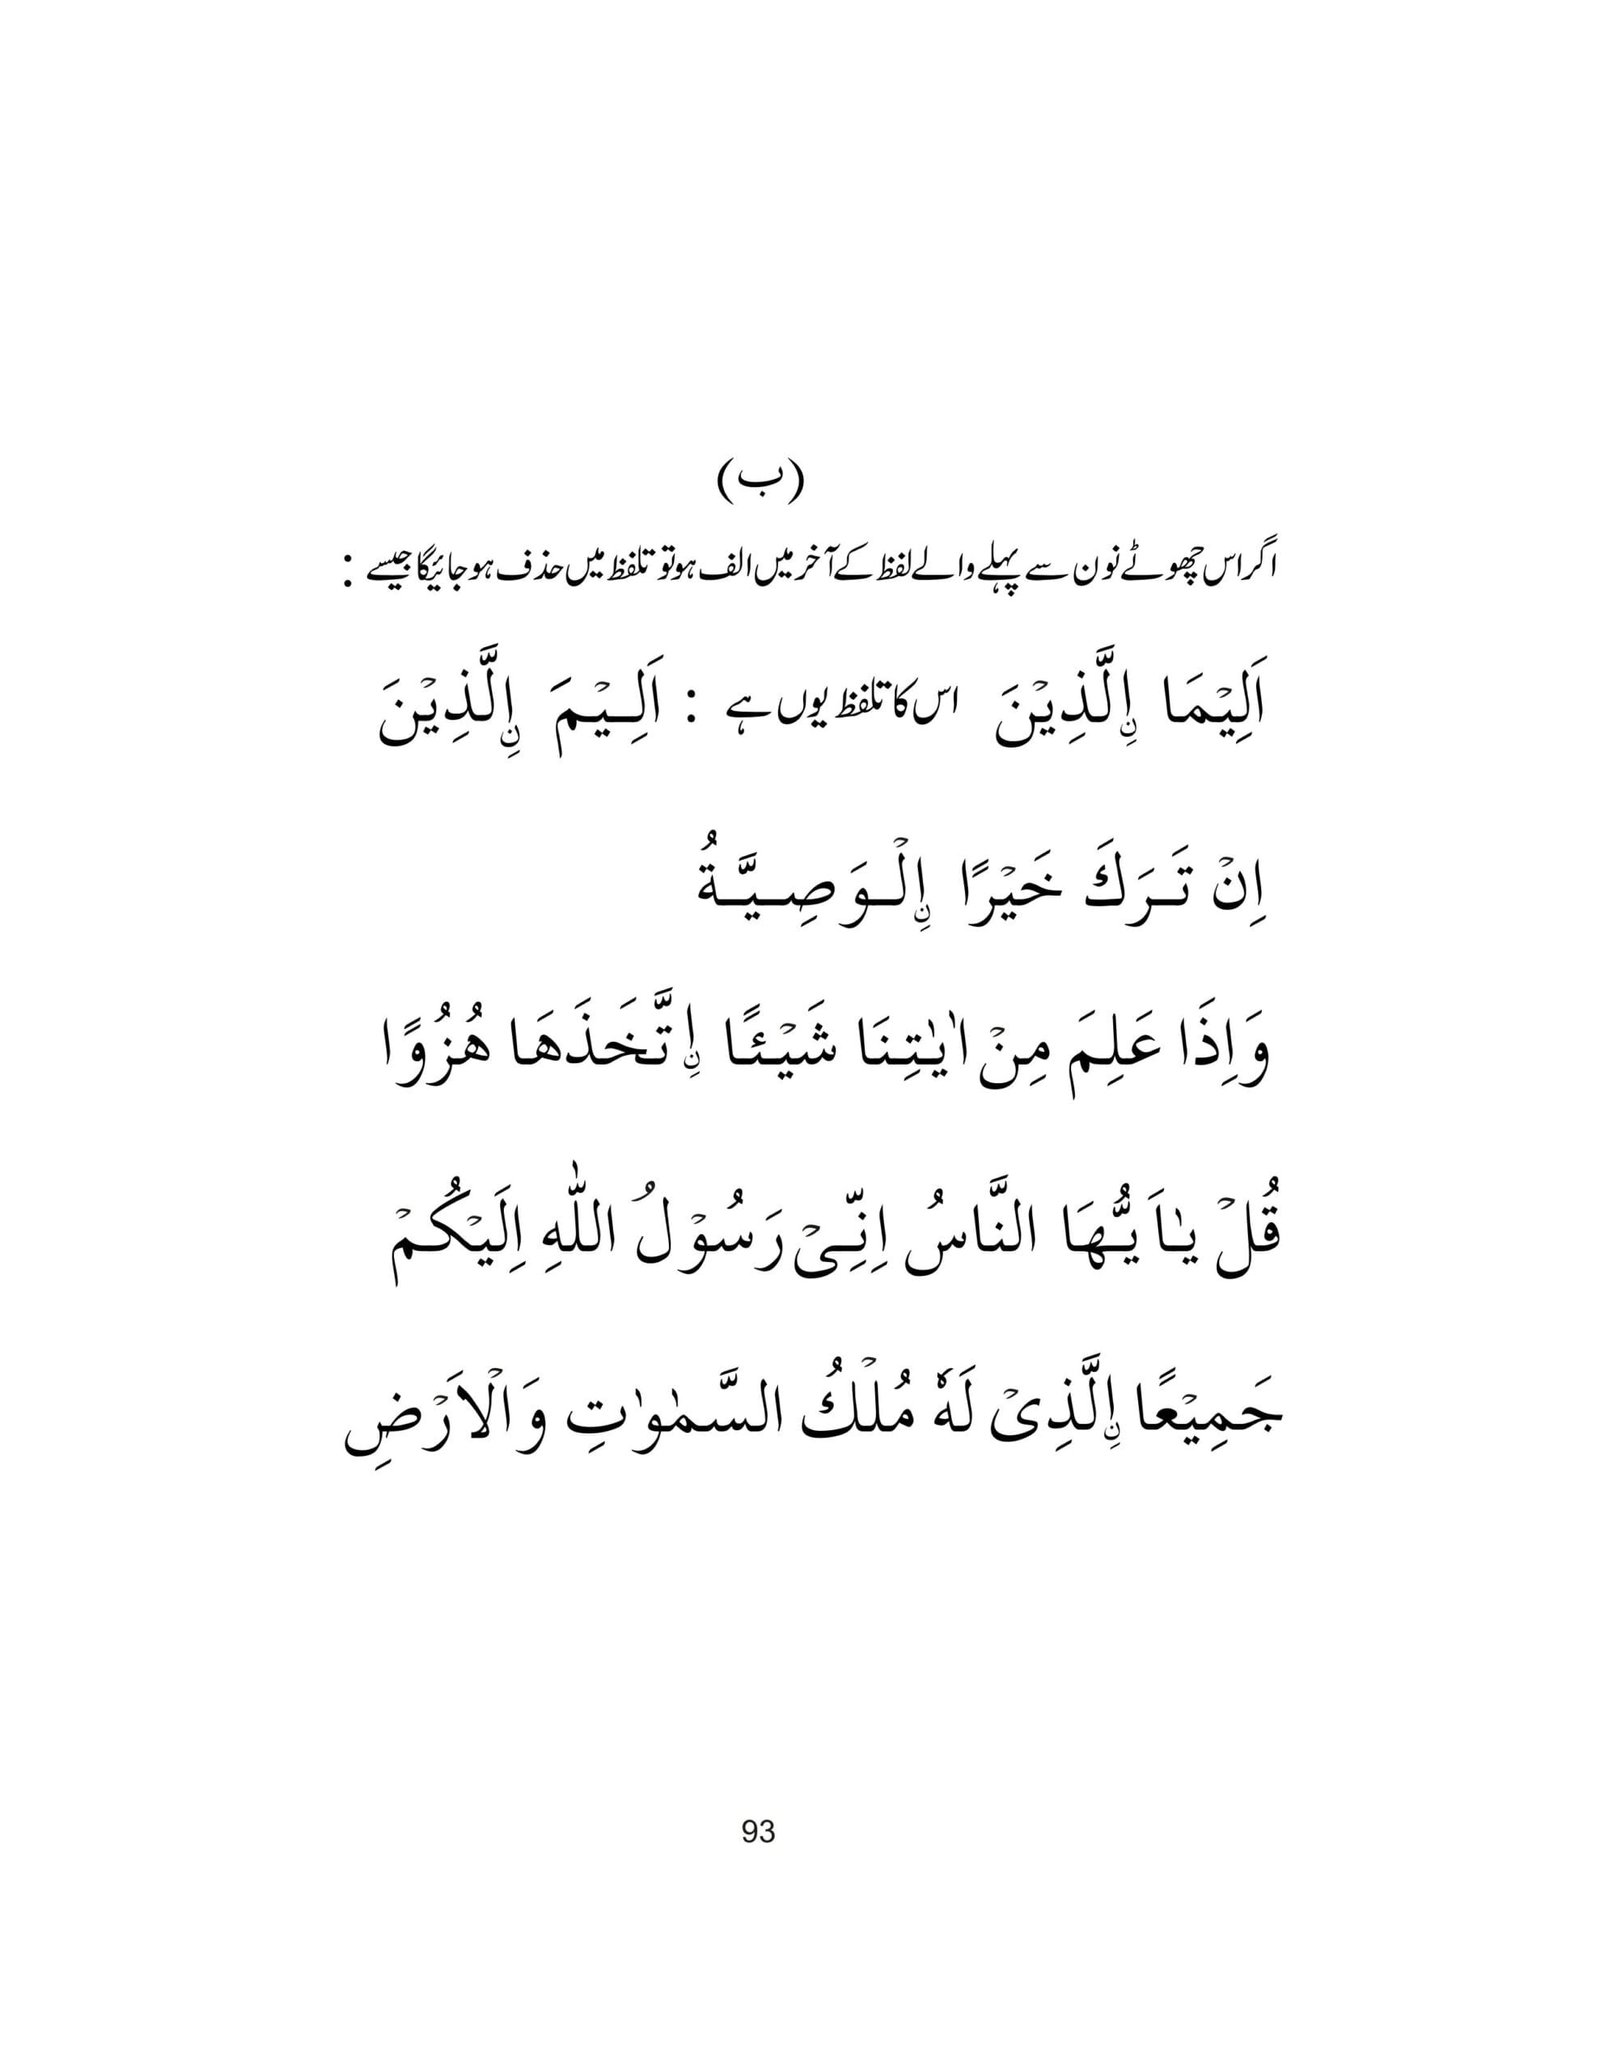 (ب)
اگر اس چھوٹے نون سے پہلے والے لفظ کے آخر میں الف ہو تو تلفظ میں حذف ہو جائیگا جیسے :
اَلِيْمَا ۨالَّذِيْنَ اس کا تلفظ یوں ہے : اَلِــيْمَ ۨالَّذِيْنَ
اِنْ تَـرَكَ خَيْرًا ۨالْـوَصِـيَّـةُ
وَاِذَا عَلِمَ مِنْ اٰيٰتِنَا شَيْـًٔـا ۨاتَّخَذَهَا هُزُوًا
قُلْ يٰاَ يُّهَا النَّاسُ اِنِّـىْ رَسُوْلُ اللّٰهِ اِلَيْكُمْ
جَمِيْعًا ۨالَّذِىْ لَهٗ مُلْكُ السَّمٰوٰتِ وَالْاَرْضِ
93